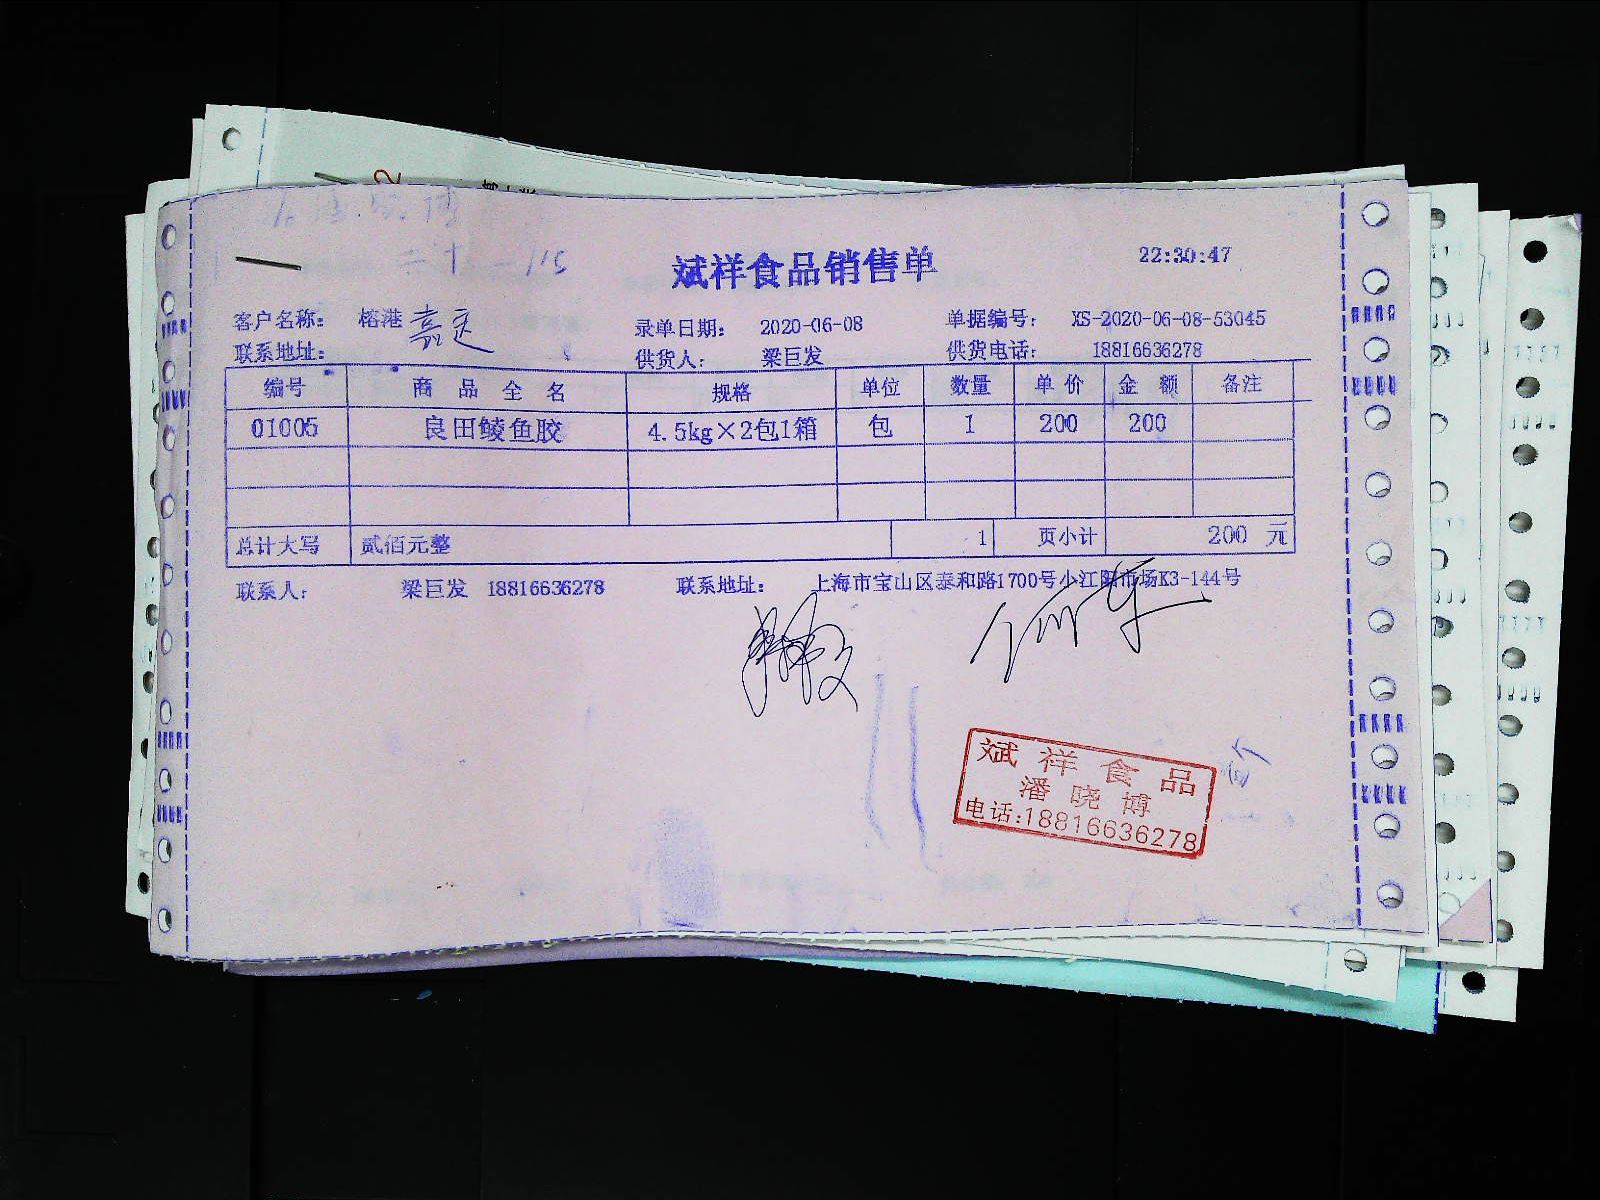 斌祥食品销售单
22:30:47
客户名称： 榕港 嘉定 录单日期： 2020-06-08 单据编号： XS-2020-06-08-53045
联系地址： 供货人： 梁巨发 供货电话： 18816636278
编号 商品全名 规格 单位 数量 单价 金额 备注
01005 良田鲮鱼胶 4.5kg×2包1箱 包 1 200 200
总计大写 贰佰元整 1 页小计 200 元
联系人： 梁巨发 18816636278 联系地址： 上海市宝山区泰和路1700号小江阳市场K3-144号
斌祥食品
潘晓博
电话:18816636278